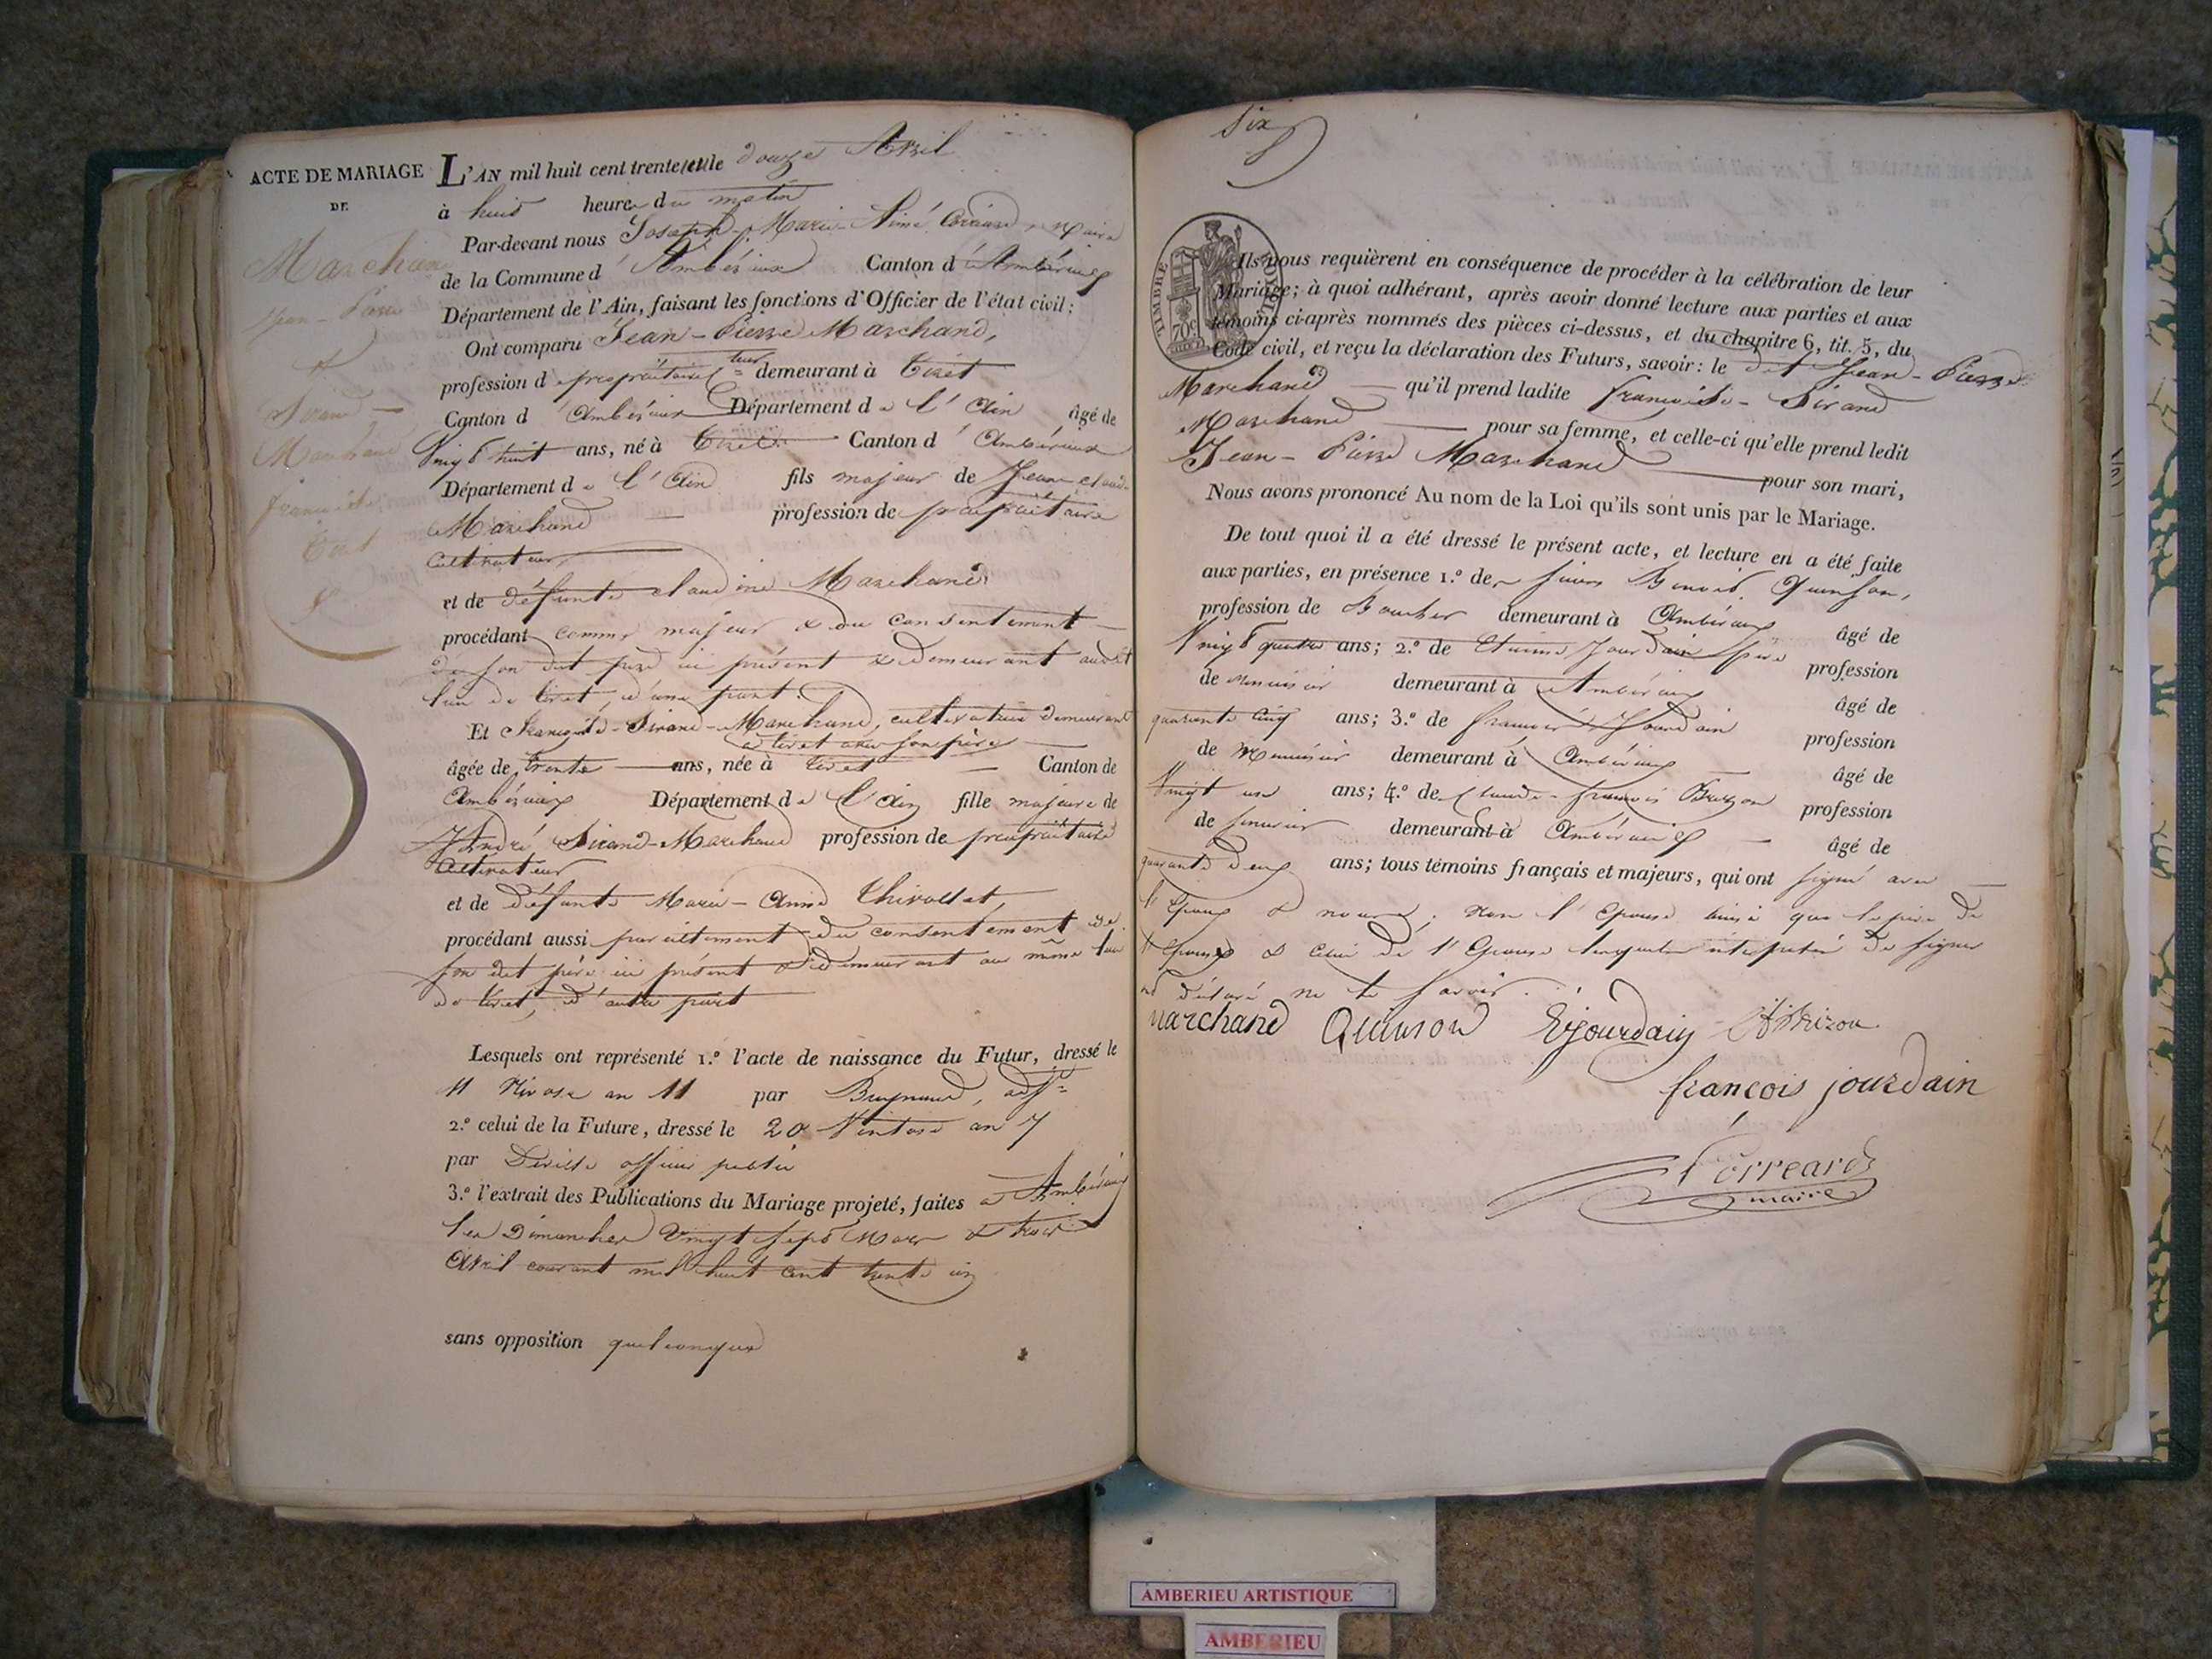 ACTE DE MARIAGE
DE
Marchand
Jean-Pierre
&
Sirand-
Marchand
françoise
Tiret
L'AN mil huit cent trente et le douze Avril
à huit heure du matin
Par-devant nous Joseph-Marie-Aimé Corréard, Maire
de la Commune d'Ambérieux Canton d'Ambérieux
Département de l'Ain, faisant les fonctions d'Officier de l'état civil:
Ont comparu Jean-Pierre Marchand,
profession de propriétaire cteur demeurant à Tiret
Canton d'Ambérieux Département de l'Ain âgé de
Vingt huit ans, né à Tiret Canton d'Ambérieux
Département de l'Ain fils majeur de Jean Claude
Marchand profession de propriétaire
cultivateur,
et de défunte Claudine Marchand
procédant comme majeur & du consentement
de son dit père ici présent & demeurant audit
lieu de Tiret, d'une part.
Et Françoise-Sirand-Marchand, cultivatrice demeurant
à Tiret avec son père
âgée de trente ans, née à Tiret Canton de
Ambérieux Département de l'Ain fille majeure de
André Sirand-Marchand profession de propriétaire
cultivateur
et de défunte Marie-Anne Thivollet,
procédant aussi pareillement du consentement de
son dit père ici présent & demeurant au même lieu
de Tiret, d'autre part
Lesquels ont représenté 1.º l'acte de naissance du Futur, dressé le
11 Nivose an 11 par adjt
2.º celui de la Future, dressé le 20 Ventose an 7
par officier public
3.º l'extrait des Publications du Mariage projeté, faites à Ambérieux
les Dimanches Vingt sept Mars & trois
Avril courant mil huit cent trente un
sans opposition quelconque
six
TIMBRE ROYAL
70c
Ils nous requièrent en conséquence de procéder à la célébration de leur
Mariage; à quoi adhérant, après avoir donné lecture aux parties et aux
témoins ci-après nommés des pièces ci-dessus, et du chapitre 6, tit. 5, du
Code civil, et reçu la déclaration des Futurs, savoir: le dit Jean-Pierre
Marchand qu'il prend ladite françoise-Sirand
Marchand pour sa femme, et celle-ci qu'elle prend ledit
Jean-Pierre Marchand pour son mari,
Nous avons prononcé Au nom de la Loi qu'ils sont unis par le Mariage.
De tout quoi il a été dressé le présent acte, et lecture en a été faite
aux parties, en présence 1.º de sieurs Benoit Quinson,
profession de Boucher demeurant à Ambérieux âgé de
Vingt quatre ans; 2.º de Etienne Jourdain père profession
de Menuisier demeurant à Ambérieux âgé de
quarante cinq ans; 3.º de françois Jourdain profession
de Menuisier demeurant à Ambérieux âgé de
Vingt un ans; 4.º de Claude-françois Brizon profession
de demeurant à Ambérieux âgé de
quarante deux ans; tous témoins français et majeurs, qui ont signé avec
l'Epoux & nous; non l'Epouse ainsi que le père de
l'Epoux & celui de l'Epouse lesquels interpelés de signer
ont déclaré ne le savoir.
Marchand Quinson E Jourdain Brizon
françois jourdain
Corréard
maire
AMBERIEU ARTISTIQUE
AMBERIEU